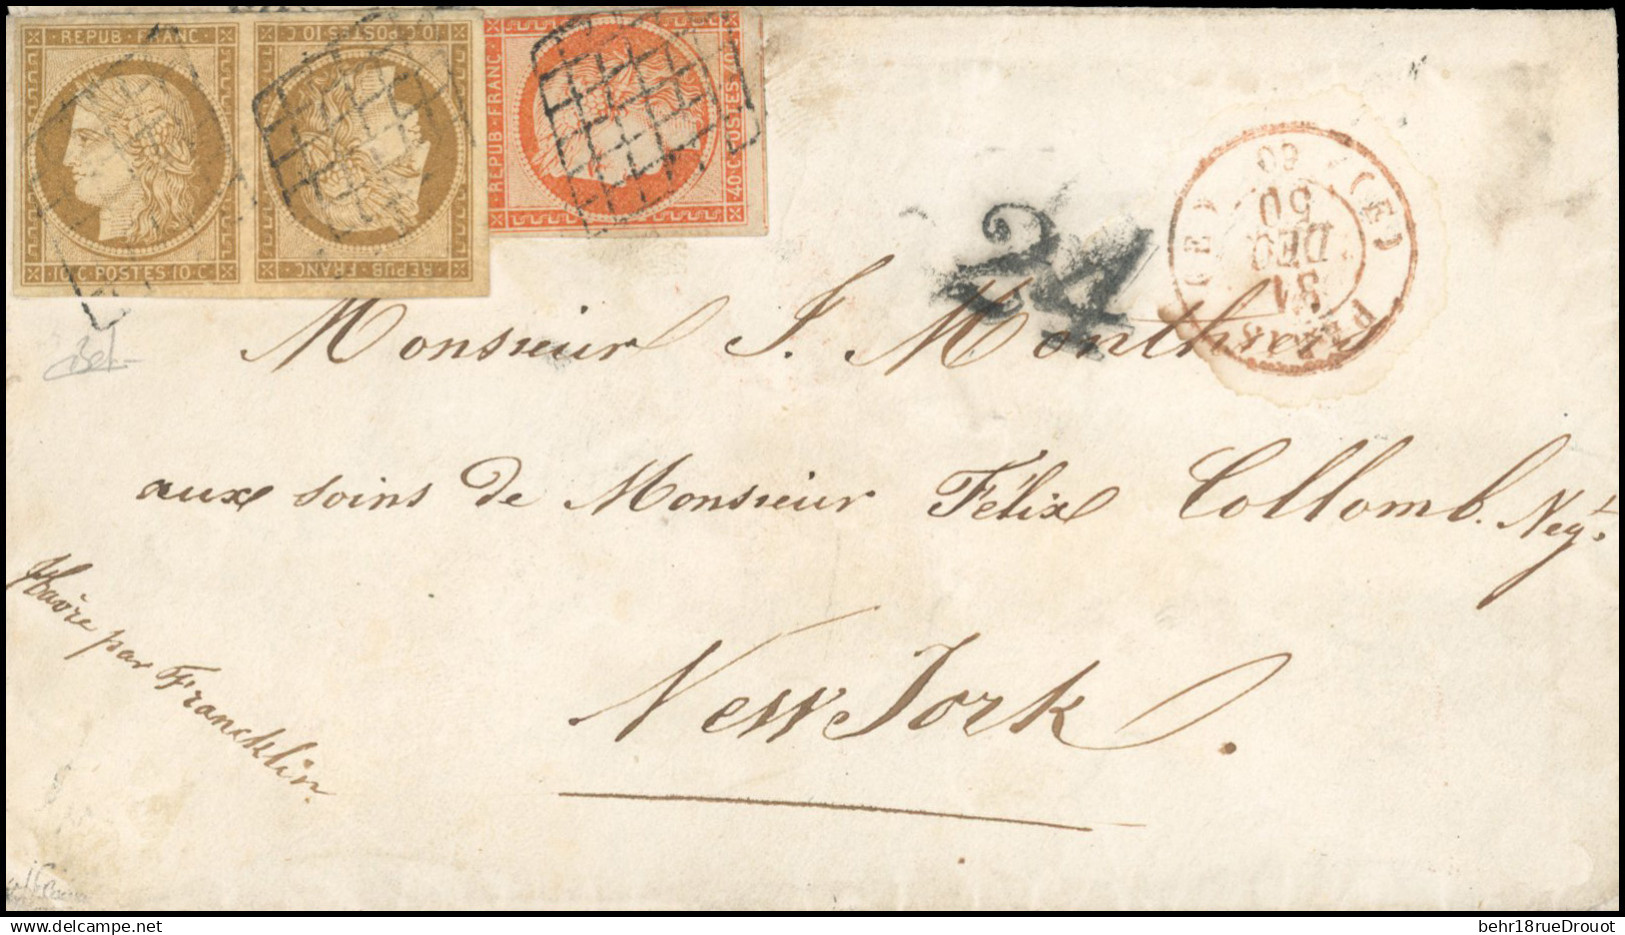 REPUB · FRANC
10 C. POSTES 10 C.
10 C. POSTES 10 C.
REPUB · FRANC
REPUB · FRANC.
40 C. POSTES 40 C.
24
PARIS
(E)
(E)
60
31
DEC
50
Monsieur J. Monthiers
aux soins de Monsieur Félix Collomb. Negt.
New Jork.
Havre par Francklin.
behr18rueDrouot